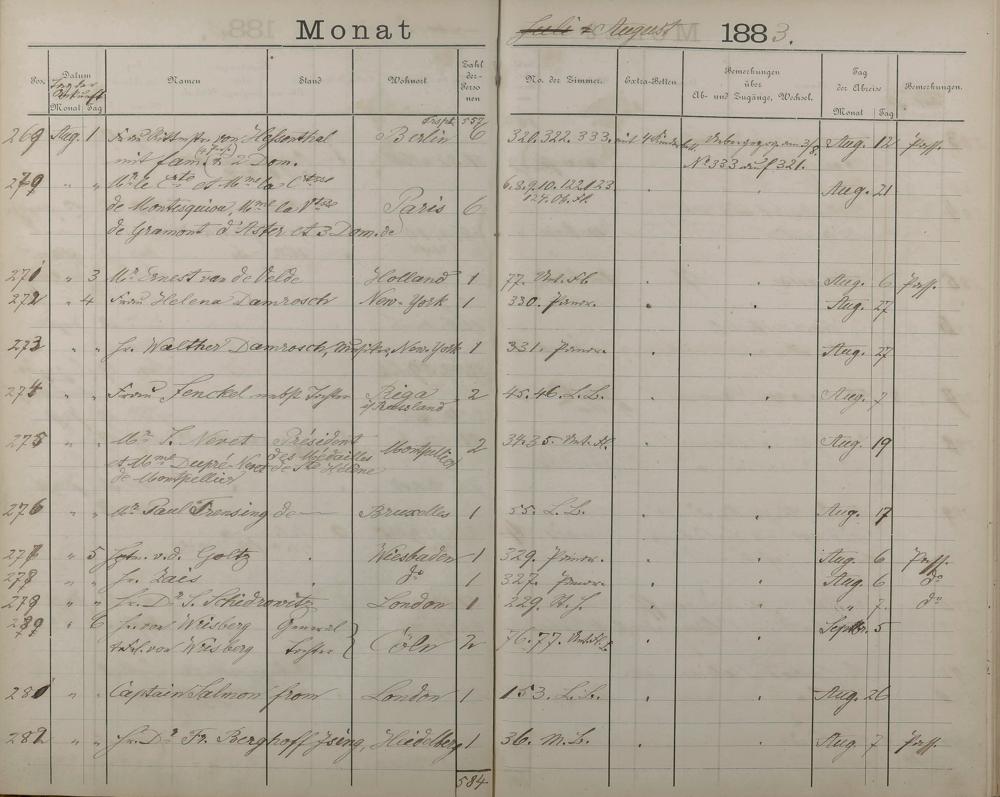 Monat Juli & August 1883.
Pos. Datum Namen Stand Wohnort Zahl der Personen No. der Zimmer. Extra-Betten. Bemerkungen über Ab- und Zugänge, Wechsel. Tag der Abreise Bemerkungen.
Tag der Ankunft
Monat Tag Monat Tag
Trspt. 552
269 Aug. 1 Frau Rittmstr. von Hessenthal Berlin 6 320. 322. 333. mit 4 Aug. 12 Pass.
mit fam. 2 Dom. No 333 auf 321.
270 " " Mr le Cte et Mme la Ctesse 6.8.9.10.122.123 Aug. 21
de Montesquiou, Mme la Vtesse Paris 6
de Gramont d'Aster et 3 Dom. de
271 " 3 Mr Ernest van de Velde Holland 1 77. Aug. 6 Pass.
272 " 4 Frau Helena Damrosch New-York 1 330. Aug. 27
273 " " Hr. Walther Damrosch, New-York 1 331. Aug. 27
274 " " Frau Fenckel nebst Tochter Riga 2 45.46. L.L. Aug. 7
i/Russland
275 " " Mr S. Nevet Président Montpellier 2 34.35. Aug. 19
et Mme Dupré-Nevet des Médailles
de Montpellier de Ste Hélène
276 " " Mr Paul Trensing de Bruxelles 1 55. L.L. Aug. 17
277 " 5 v.d. Goltz Wiesbaden 1 329. Aug. 6 Pass.
278 " " Hr. Zais do 1 327. Aug. 6 do
279 " " Hr. Dr S. Schidrowitz London 1 229. " 7. do
280 " 6 Hr. von Wrisberg General Septbr. 5
Frl. von Wrisberg Tochter Cöln 2 76.77.
281 " " Captain Salmon from London 1 153. L.L. Aug. 26
282 " " Hr. Dr Fr. Berghoff-Ising, Heidelberg 1 36. M.L. Aug. 7 Pass.
584